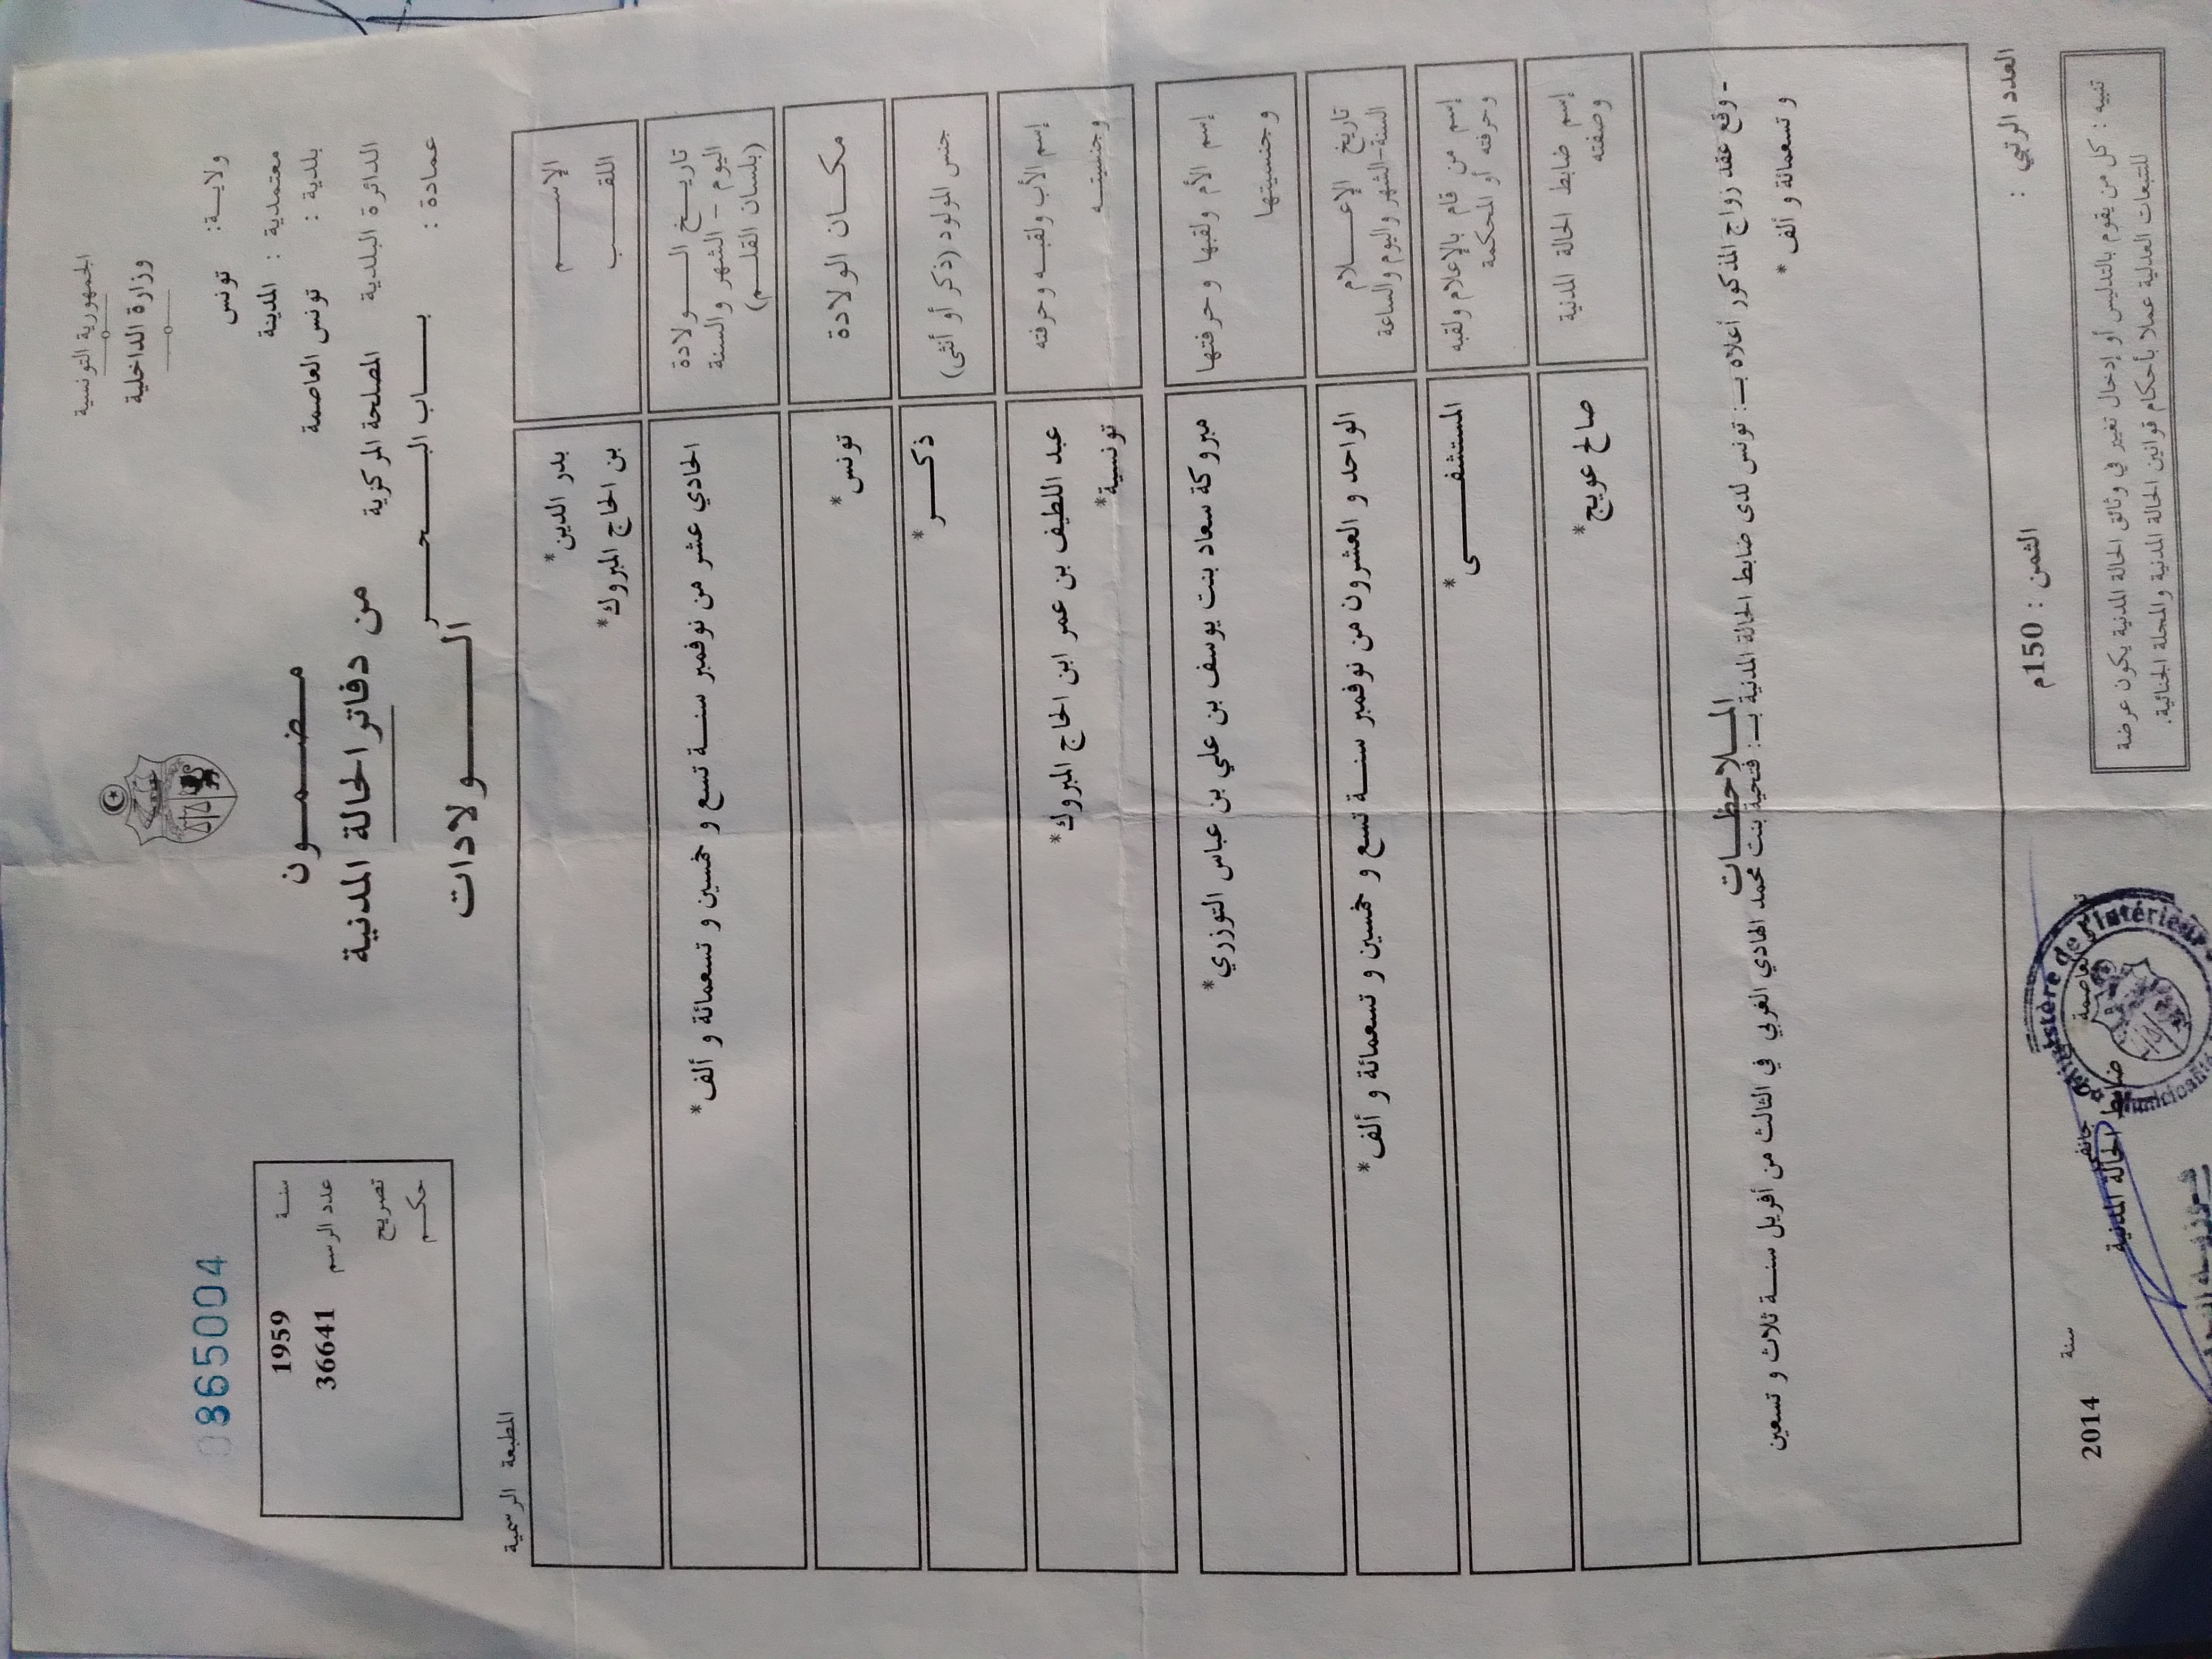 الجمهورية التونسية
وزارة الداخلية
ولاية: تونس
معتمدية : المدينة
بلدية : تونس العاصمة
الدائرة البلدية المصلحة المركزية
عمادة : باب البحر
مضمون
من دفاتر الحالة المدنية
الولادات
0865004
سنة 1959
عدد الرسم 36641
تصريح
حكم
المطبعة الرسمية
الإسم بدر الدين*
اللقب بن الحاج المبروك*
تاريخ الولادة
اليوم - الشهر والسنة
(بلسان القلم)
الحادي عشر من نوفمبر سنة تسع و خمسين و تسعمائة و ألف*
مكان الولادة تونس*
جنس المولود (ذكر أو أنثى) ذكر*
إسم الأب ولقبه وحرفته عبد اللطيف بن عمر ابن الحاج المبروك*
وجنسيته تونسية*
إسم الأم ولقبها وحرفتها مبروكة سعاد بنت يوسف بن علي بن عباس التوزري*
وجنسيتها
تاريخ الإعلام
السنة-الشهر واليوم والساعة
الواحد و العشرون من نوفمبر سنة تسع و خمسين و تسعمائة و ألف*
إسم من قام بالإعلام ولقبه
وحرفته أو المحكمة
المستشفى*
إسم ضابط الحالة المدنية
وصفته
صالح عويج*
الملاحظات
- وقع عقد زواج المذكور أعلاه بـ: تونس لدى ضابط الحالة المدنية بـ: فتحية بنت محمد الهادي الغربي في الثالث من أفريل سنة ثلاث و تسعين
و تسعمائة و ألف *
العدد الرتبي :
الثمن : 150م
تنبيه : كل من يقوم بالتدليس أو إدخال تغيير في وثائق الحالة المدنية يكون عرضة
للتتبعات العدلية عملا بأحكام قوانين الحالة المدنية والمجلة الجنائية.
جانفي سنة 2014
ضابط الحالة المدنية
de l'Intérieur